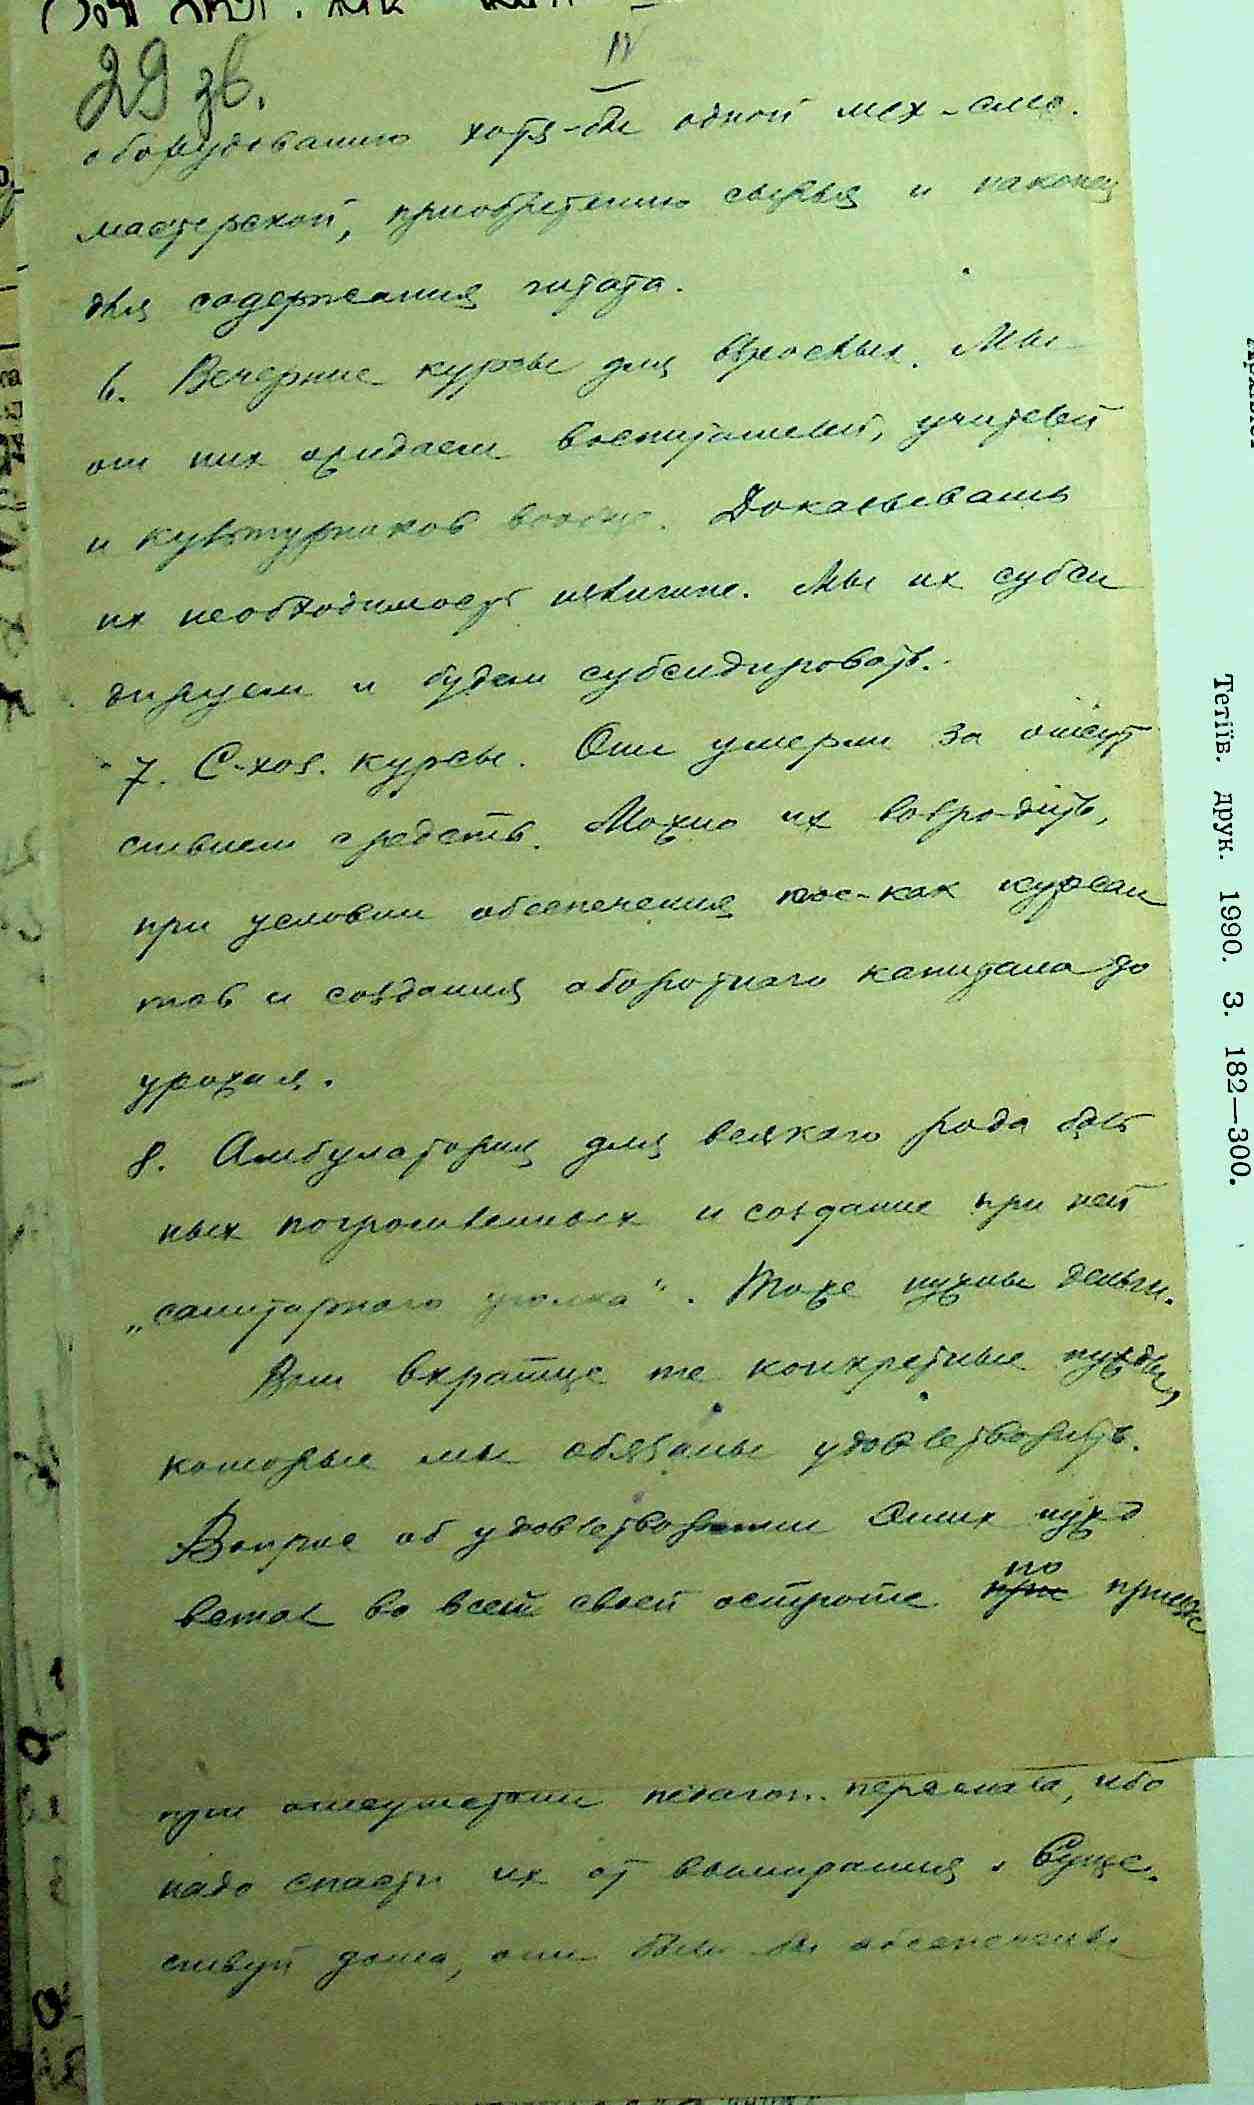 29 зв.
IV
оборудованию хотя-бы одной мех-слес.
мастерской, приобретению сырья и наконец
для содержания штата.
6. Вечерние курсы для взрослых. Мы
от них ожидаем воспитателей, учителей
и культурников вообще. Доказывать
их необходимость излишне. Мы их субси
дируем и будем субсидировать.
7. С-хоз. курсы. Они умерли за отсут
ствием средств. Можно их возродить,
при условии обеспечения кое-как курсан
тов и создания оборотного капитала до
урожая.
8. Амбулатория для всякого рода боль
ных погромленных и создание при ней
„санитарного уголка". Тоже нужны деньги.
Вот вкратце те конкретные нужды,
которые мы обязаны удовлетворить.
Вопрос об удовлетворении этих нужд
встал во всей своей остроте по
при отсутствии педагог. персонала, ибо
надо спасти их от вымирания. Суще-
ствуй дома, они были бы
Тетіїв. друк. 1990. З. 182—300.